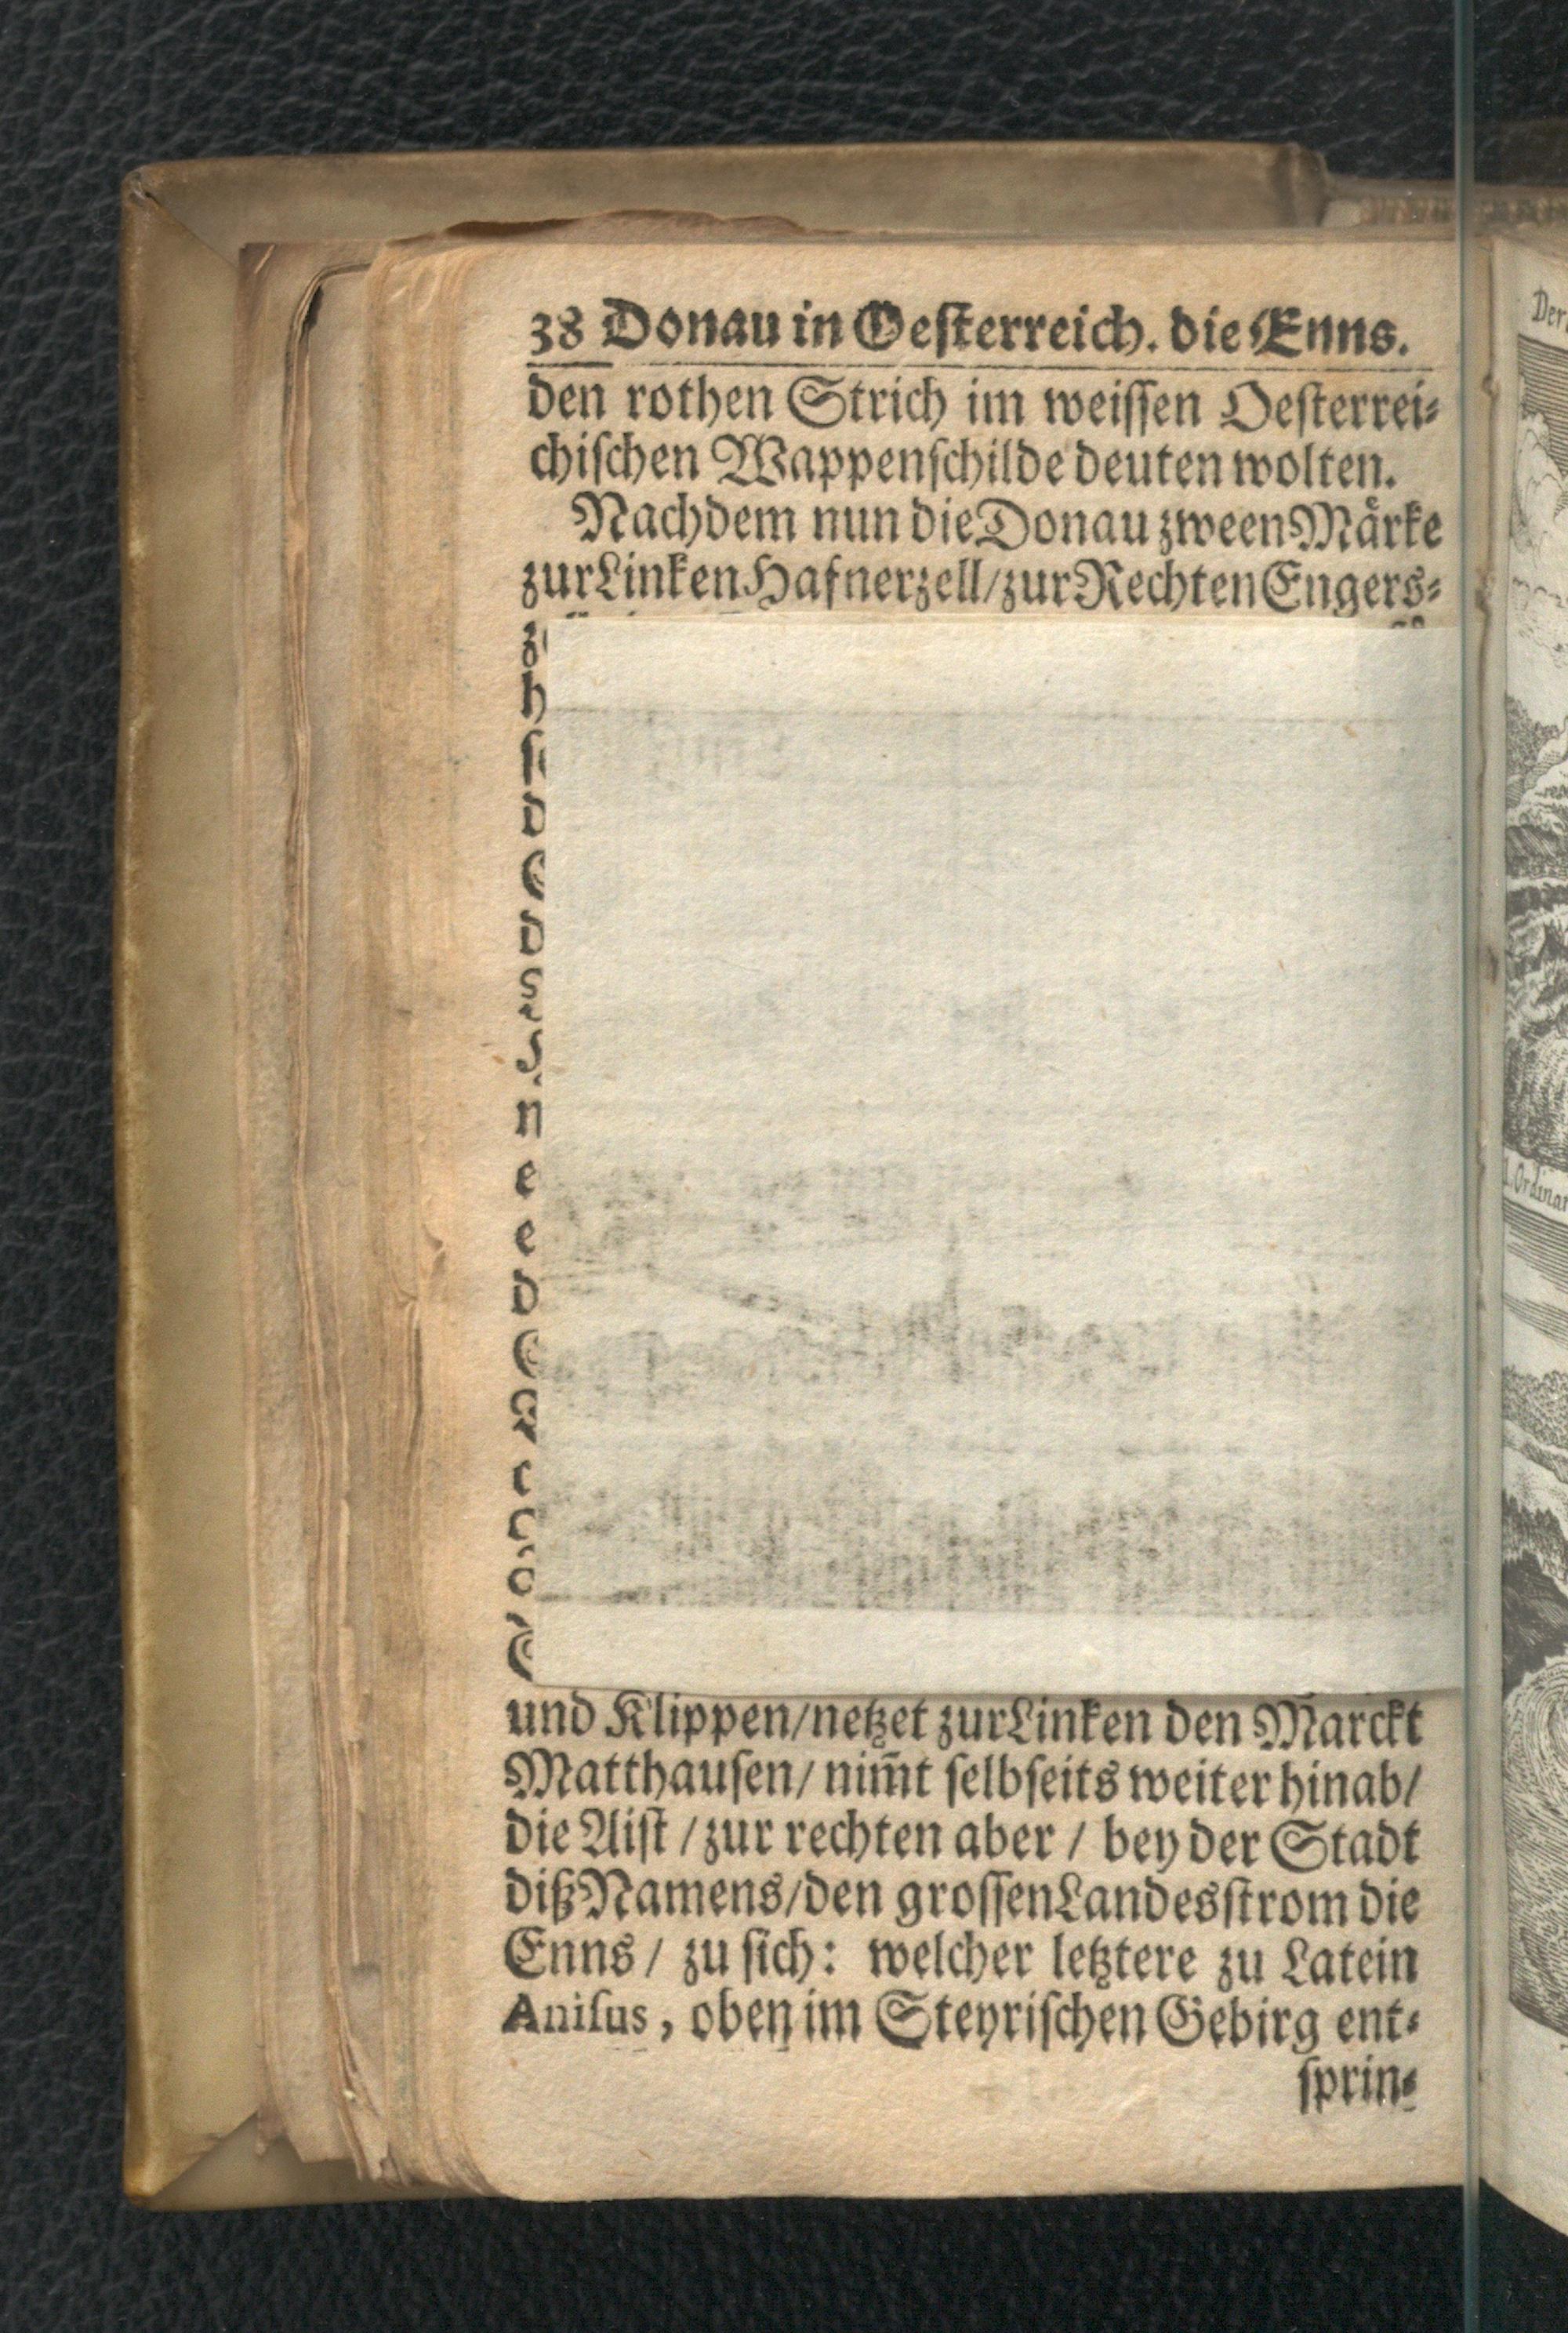 38 Donau in Oeſterreich. die Enns.
den rothen Strich im weiſſen Oeſterrei⸗
chiſchen Wappenſchilde deuten wolten.
Nachdem nun die Donau zween Märke
zur Linken Hafnerzell/zur Rechten Engers⸗
z
h
ſ
d
E
d
n
e
e
d
E
r
E
und Klippen/netzet zur Linken den Marckt
Matthauſen/ nim̃t ſelbſeits weiter hinab/
die Aiſt / zur rechten aber / bey der Stadt
diß Namens/den groſſen Landesſtrom die
Enns / zu ſich: welcher letztere zu Latein
Aniſus, oben im Steyriſchen Gebirg ent⸗
ſprin⸗
Der
Ordinar